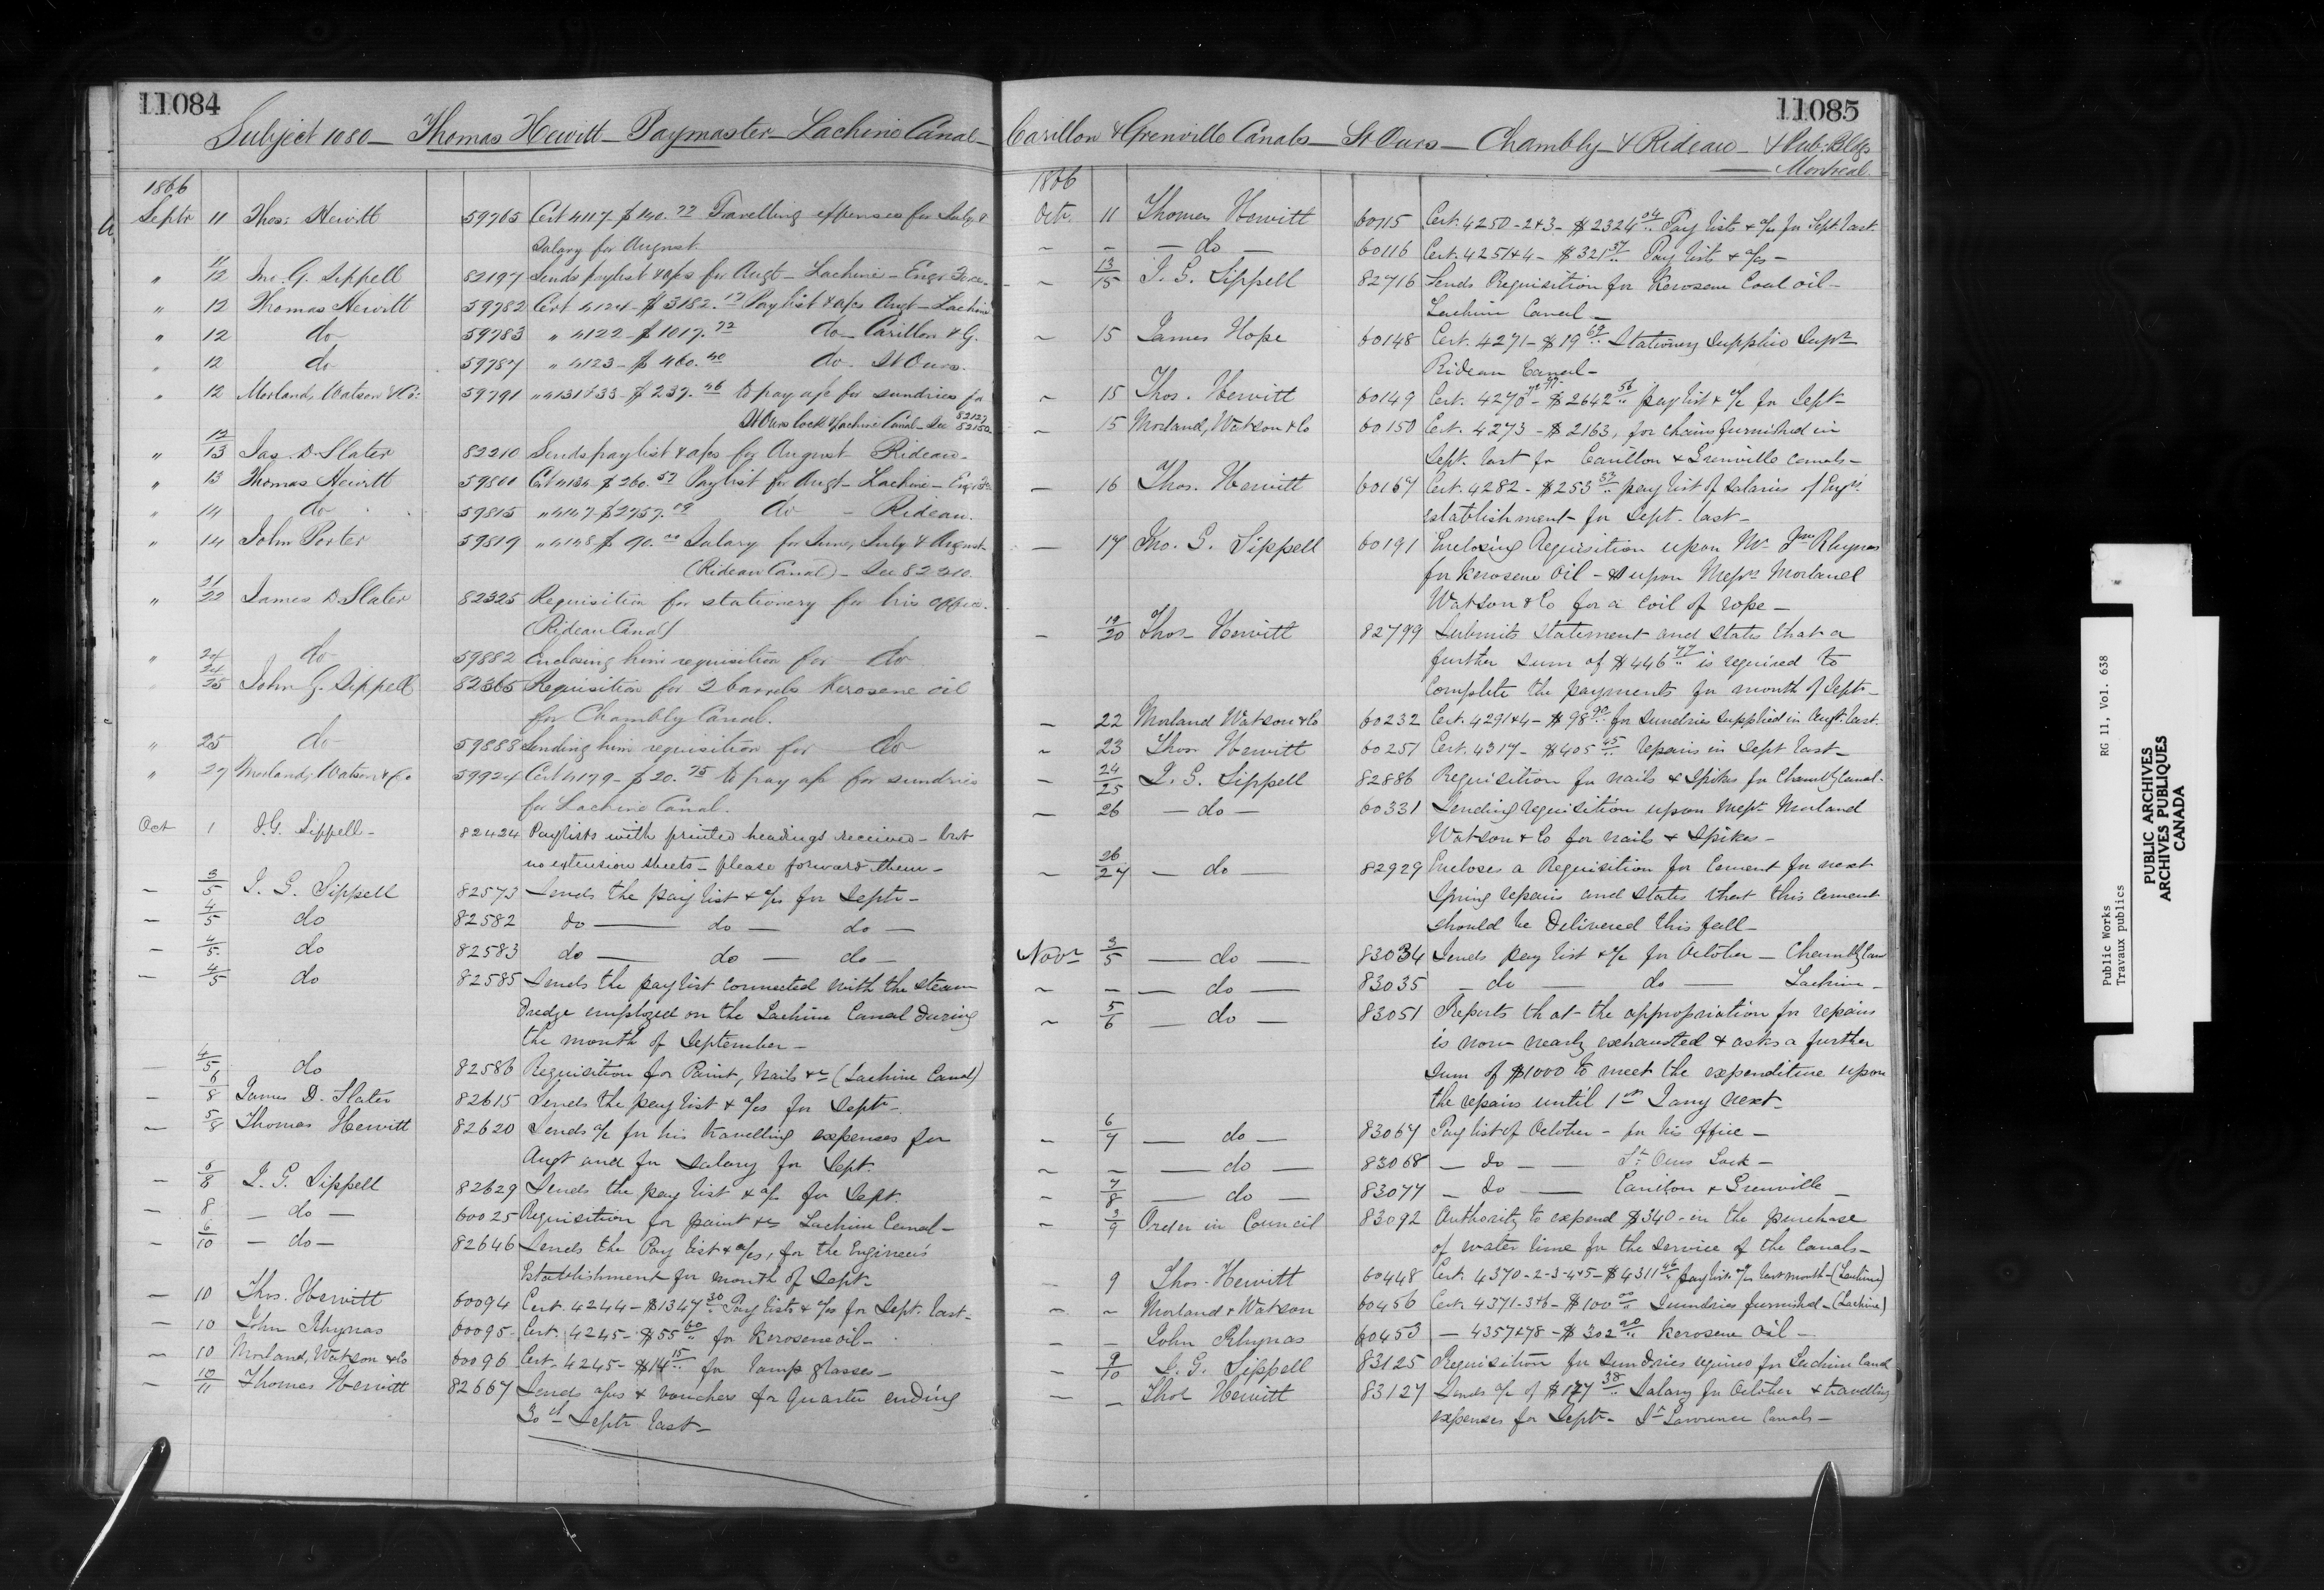 11084
Subject 1080 — Thomas Hewitt — Paymaster — Lachine Canal —
1866
Septr 11 Thos: Hewitt 59765 Cert 4117 $140.72 Travelling expenses for July &
Salary for August.
" 11/12 Jno. G. Sippell 82197 Sends paylist & a/cs for Augt — Lachine —
" 12 Thomas Hewitt 59782 Cert 4124 — $3182.12 Paylist & a/cs Augt — Lachine
" 12 do 59783 " 4122 — $1017.72 do — Carillon & G.
" 12 do 59787 " 4123 — $460.40 do St Ours.
" 12 Morland, Watson & Co: 59791 " 4131 & 33 — $237.46 to pay a/c for sundries for
St Ours lock & Lachine Canal — See 82127 82150
" 12/13 Jas. D. Slater 82210 Sends paylist & a/cs for August Rideau —
" 13 Thomas Hewitt 59800 Cert 4134 $260.52 Paylist for Augt — Lachine —
" 14 do 59815 " 4147 — $2757.09 do — Rideau.
" 14 John Porter 59819 " 4148 $90.00 Salary for June, July & August —
(Rideau Canal) — See 82210.
" 21/22 James D. Slater 82325 Requisition for stationery for his office.
(Rideau Canal)
" 24 do 59882 Enclosing him requisition for do
24/25 John G. Sippell 82365 Requisition for 2 barrels Kerosene oil
for Chambly Canal.
" 25 do 59888 Sending him requisition for do
" 27 Morland, Watson & Co 59924 Cert 4179 — $20.75 to pay a/c for sundries
for Lachine Canal.
Oct 1 J.G. Sippell — 82424 Paylists with printed headings received — but
no extension sheets — please forward them —
— 3/5 J. G. Sippell 82573 Sends the pay list & a/cs for Septr —
— 4/5 do 82582 do — do — do —
— 4/5 do 82583 do — do — do —
— 4/5 do 82585 Sends the pay list connected with the steam
Dredge employed on the Lachine Canal during
the month of September —
— 4/5 do 82586 Requisition for Paint, Nails &c (Lachine Canal)
— 6/8 James D. Slater 82615 Sends the pay list & a/cs for Septr —
— 5/8 Thomas Hewitt 82620 Sends a/c for his travelling expenses for
Augt and for Salary for Sept.
— 6/8 J. G. Sippell 82629 Sends the pay list & a/c for Sept.
— 8 — do — 60025 Requisition for paint &c Lachine Canal —
— 6/10 — do — 82646 Sends the Pay list & a/cs, for the Engineer's
Establishment for month of Sept —
— 10 Thos. Hewitt 60094 Cert. 4244 — $1347.30 Pay lists & a/cs for Sept. last —
— 10 John Rhynas 60095 — Cert. 4245 — $55.60 for Kerosene oil —
— 10 Morland, Watson & Co 60096 Cert. 4245 — $14.15 for lamp glasses —
— 10/11 Thomas Hewitt 82667 Sends a/cs & vouchers for quarter ending
30th Septr last —
11085
Carillon & Grenville Canals — St Ours — Chambly — & Rideau — & Pub: Bldgs
— Montreal
1866
Octr. 11 Thomas Hewitt 60115 Cert. 4250 – 2 & 3 – $2324.04 Pay lists & a/c for Sept. last.
~ – — do — 60116 Cert. 4251 & 4 – $321.57 Pay lists & a/cs —
~ 13/15 J. G. Sippell 82716 Sends Requisition for Kerosene Coal oil —
Lachine Canal —
~ 15 James Hope 60148 Cert. 4271 – $19.69 Stationery Supplies Supr
Rideau Canal —
~ 15 Thos. Hewitt 60149 Cert. 4270 – $2642.56 pay list & a/c for Sept —
~ 15 Morland, Watson & Co 60150 Cert. 4273 – $2163, for chains furnished in
Sept. last for Carillon & Grenville canals —
— 16 Thos. Hewitt 60167 Cert. 4282 – $253.53 pay list of Salaries of Engrs.
establishment for Sept. last —
— 17 Jno. G. Sippell 60191 Enclosing Requisition upon Mr Jno Rhynas
for Kerosene Oil — & upon Messrs Morland
Watson & Co for a coil of rope —
— 19/20 Thos Hewitt 82799 Submits statement and states that a
further sum of $446.77 is required to
complete the payments for month of Septr —
— 22 Morland Watson & Co 60232 Cert. 4291 & 4 – $98.90 for sundries supplied in Augt. last.
~ 23 Thos Hewitt 60251 Cert. 4317 – $405.45 repairs in Sept last —
— 24/25 J. G. Sippell 82886 Requisition for nails & spikes for Chambly Canal —
— 26 — do — 60331 Sending requisition upon Messrs Morland
Watson & Co for nails & Spikes —
~ 26/27 — do — 82929 Encloses a Requisition for Cement for next
Spring repairs and states that this cement
should be Delivered this fall —
Novr 3/5 — do — 83034 Sends pay list & a/c for October — Chambly Canl
~ – — do — 83035 — do — do — Lachine —
~ 5/6 — do — 83051 Reports that the appropriation for repairs
is now nearly exhausted & asks a further
sum of $1000 to meet the expenditure upon
the repairs until 1st Jany next —
~ 6/7 — do — 83067 Pay list of October — for his office —
~ – — do — 83068 — do — St Ours Lock —
~ 7/8 — do — 83077 — do — Carillon & Grenville —
~ 3/9 Order in Council 83092 Authority to expend $340 – in the purchase
of water lime for the service of the Canals —
— 9 Thos. Hewitt 60448 Cert. 4370 – 2 – 3 – 4 & 5 – $4311.46 pay lists & a/cs last month — (Lachine)
~ ~ Morland & Watson 60456 Cert. 4371 – 3 & 6 – $100.00 Sundries furnished — (Lachine)
— – John Rhynas 60453 — 4357 & 78 – $302.20 Kerosene Oil —
— 9/10 J. G. Sippell 83125 Requisition for Sundries required for Lachine Canal
— – Thos Hewitt 83127 Sends a/c of $177.38 Salary for October & travelling
expenses for Septr — St Lawrence Canals —
Public Works RG 11, Vol. 638
Travaux publics
PUBLIC ARCHIVES
ARCHIVES PUBLIQUES
CANADA